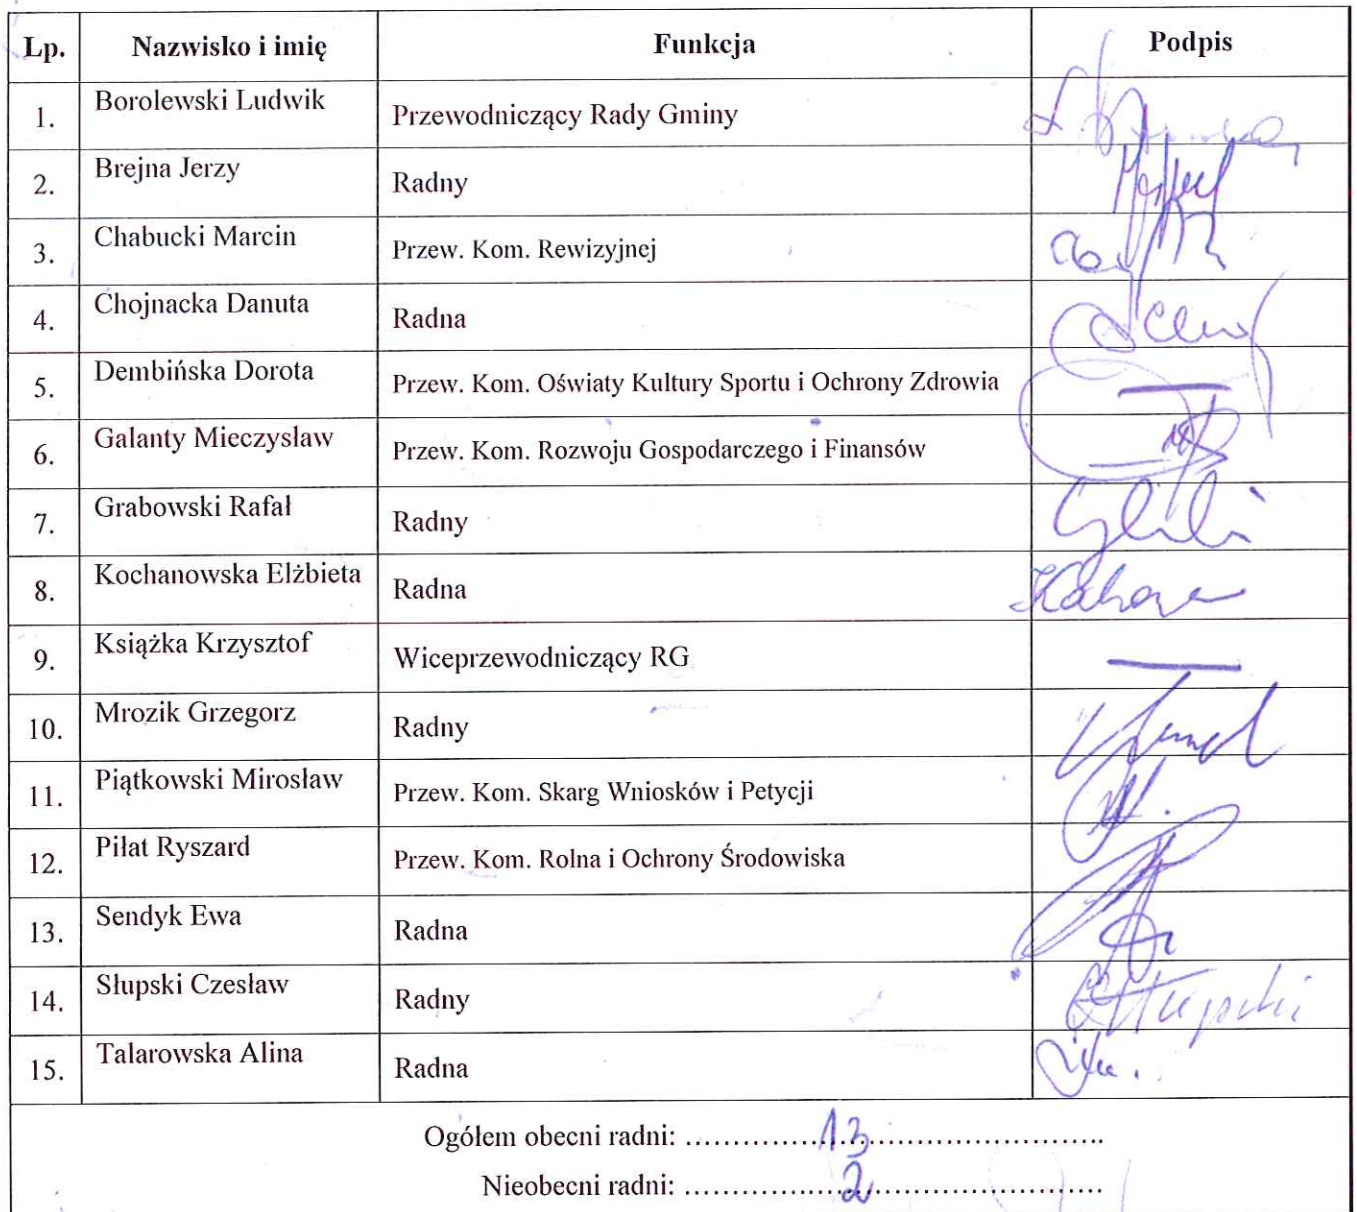 Lp. Nazwisko i imię Funkcja Podpis
1. Borolewski Ludwik Przewodniczący Rady Gminy
2. Brejna Jerzy Radny
3. Chabucki Marcin Przew. Kom. Rewizyjnej
4. Chojnacka Danuta Radna
5. Dembińska Dorota Przew. Kom. Oświaty Kultury Sportu i Ochrony Zdrowia —
6. Galanty Mieczysław Przew. Kom. Rozwoju Gospodarczego i Finansów
7. Grabowski Rafał Radny
8. Kochanowska Elżbieta Radna
9. Książka Krzysztof Wiceprzewodniczący RG —
10. Mrozik Grzegorz Radny
11. Piątkowski Mirosław Przew. Kom. Skarg Wniosków i Petycji
12. Piłat Ryszard Przew. Kom. Rolna i Ochrony Środowiska
13. Sendyk Ewa Radna
14. Słupski Czesław Radny
15. Talarowska Alina Radna
Ogółem obecni radni: ................13................................
Nieobecni radni: ...................2..............................